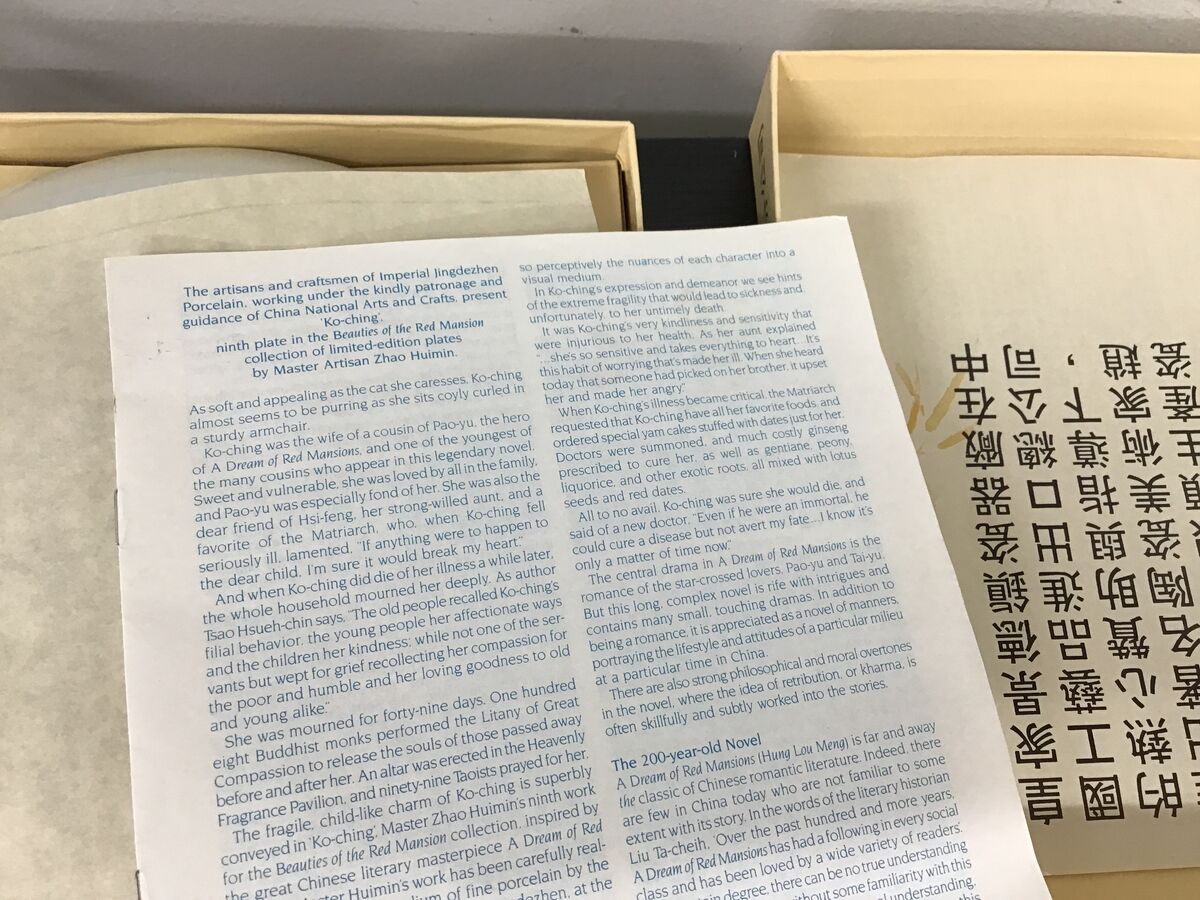 The artisans and craftsmen of Imperial Jingdezhen
Porcelain, working under the kindly patronage and
guidance of China National Arts and Crafts, present
'Ko-ching',
ninth plate in the Beauties of the Red Mansion
collection of limited-edition plates
by Master Artisan Zhao Huimin.
As soft and appealing as the cat she caresses, Ko-ching
almost seems to be purring as she sits coyly curled in
a sturdy armchair.
Ko-ching was the wife of a cousin of Pao-yu, the hero
of A Dream of Red Mansions, and one of the youngest of
the many cousins who appear in this legendary novel.
Sweet and vulnerable, she was loved by all in the family,
and Pao-yu was especially fond of her. She was also the
dear friend of Hsi-feng, her strong-willed aunt, and a
favorite of the Matriarch, who, when Ko-ching fell
seriously ill, lamented, "If anything were to happen to
the dear child, I'm sure it would break my heart."
And when Ko-ching did die of her illness a while later,
the whole household mourned her deeply. As author
Tsao Hsueh-chin says, "The old people recalled Ko-ching's
filial behavior, the young people her affectionate ways
and the children her kindness; while not one of the ser-
vants but wept for grief recollecting her compassion for
the poor and humble and her loving goodness to old
and young alike."
She was mourned for forty-nine days. One hundred
eight Buddhist monks performed the Litany of Great
Compassion to release the souls of those passed away
before and after her. An altar was erected in the Heavenly
Fragrance Pavilion, and ninety-nine Taoists prayed for her.
The fragile, child-like charm of Ko-ching is superbly
conveyed in 'Ko-ching', Master Zhao Huimin's ninth work
for the Beauties of the Red Mansion collection, inspired by
the great Chinese literary masterpiece A Dream of Red
Huimin's work has been carefully real-
of fine porcelain by the
at the
so perceptively the nuances of each character into a
visual medium.
In Ko-ching's expression and demeanor we see hints
of the extreme fragility that would lead to sickness and
unfortunately, to her untimely death.
It was Ko-ching's very kindliness and sensitivity that
were injurious to her health. As her aunt explained
"...she's so sensitive and takes everything to heart...It's
this habit of worrying that's made her ill. When she heard
today that someone had picked on her brother, it upset
her and made her angry."
When Ko-ching's illness became critical, the Matriarch
requested that Ko-ching have all her favorite foods, and
ordered special yam cakes stuffed with dates just for her.
Doctors were summoned, and much costly ginseng
prescribed to cure her, as well as gentiane, peony,
liquorice, and other exotic roots, all mixed with lotus
seeds and red dates.
All to no avail. Ko-ching was sure she would die, and
said of a new doctor, "Even if he were an immortal, he
could cure a disease but not avert my fate...I know it's
only a matter of time now."
The central drama in A Dream of Red Mansions is the
romance of the star-crossed lovers, Pao-yu and Tai-yu.
But this long, complex novel is rife with intrigues and
contains many small, touching dramas. In addition to
being a romance, it is appreciated as a novel of manners,
portraying the lifestyle and attitudes of a particular milieu
at a particular time in China.
There are also strong philosophical and moral overtones
in the novel, where the idea of retribution, or kharma, is
often skillfully and subtly worked into the stories.
The 200-year-old Novel
A Dream of Red Mansions (Hung Lou Meng) is far and away
the classic of Chinese romantic literature. Indeed, there
are few in China today who are not familiar to some
extent with its story. In the words of the literary historian
Liu Ta-cheih, 'Over the past hundred and more years,
A Dream of Red Mansions has had a following in every social
class and has been loved by a wide variety of readers;
degree, there can be no true understanding
without some familiarity with this
understanding,
this
皇家景德鎮瓷器廠在中
國工藝品進出口總公司
的熱心贊助與指導下，
著名陶瓷美術家趙
生産瓷